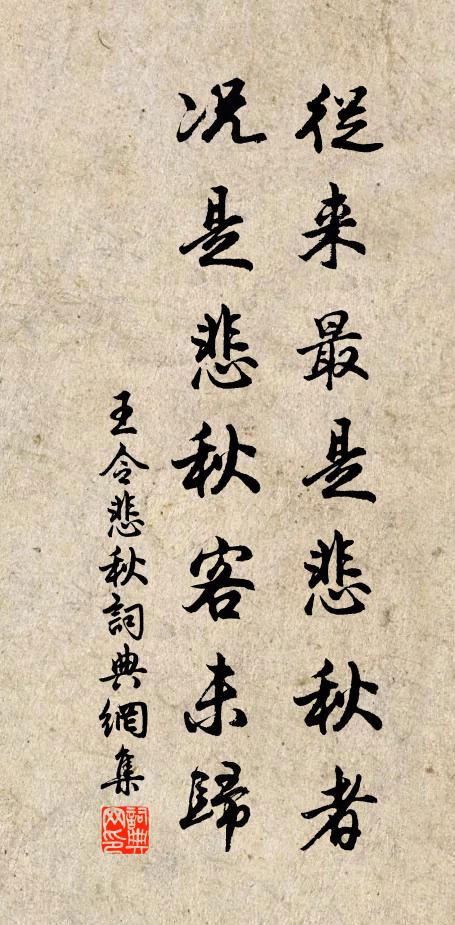 從来最是悲秋者
况是悲秋客未歸
王令悲秋詞典網集
詞典網印